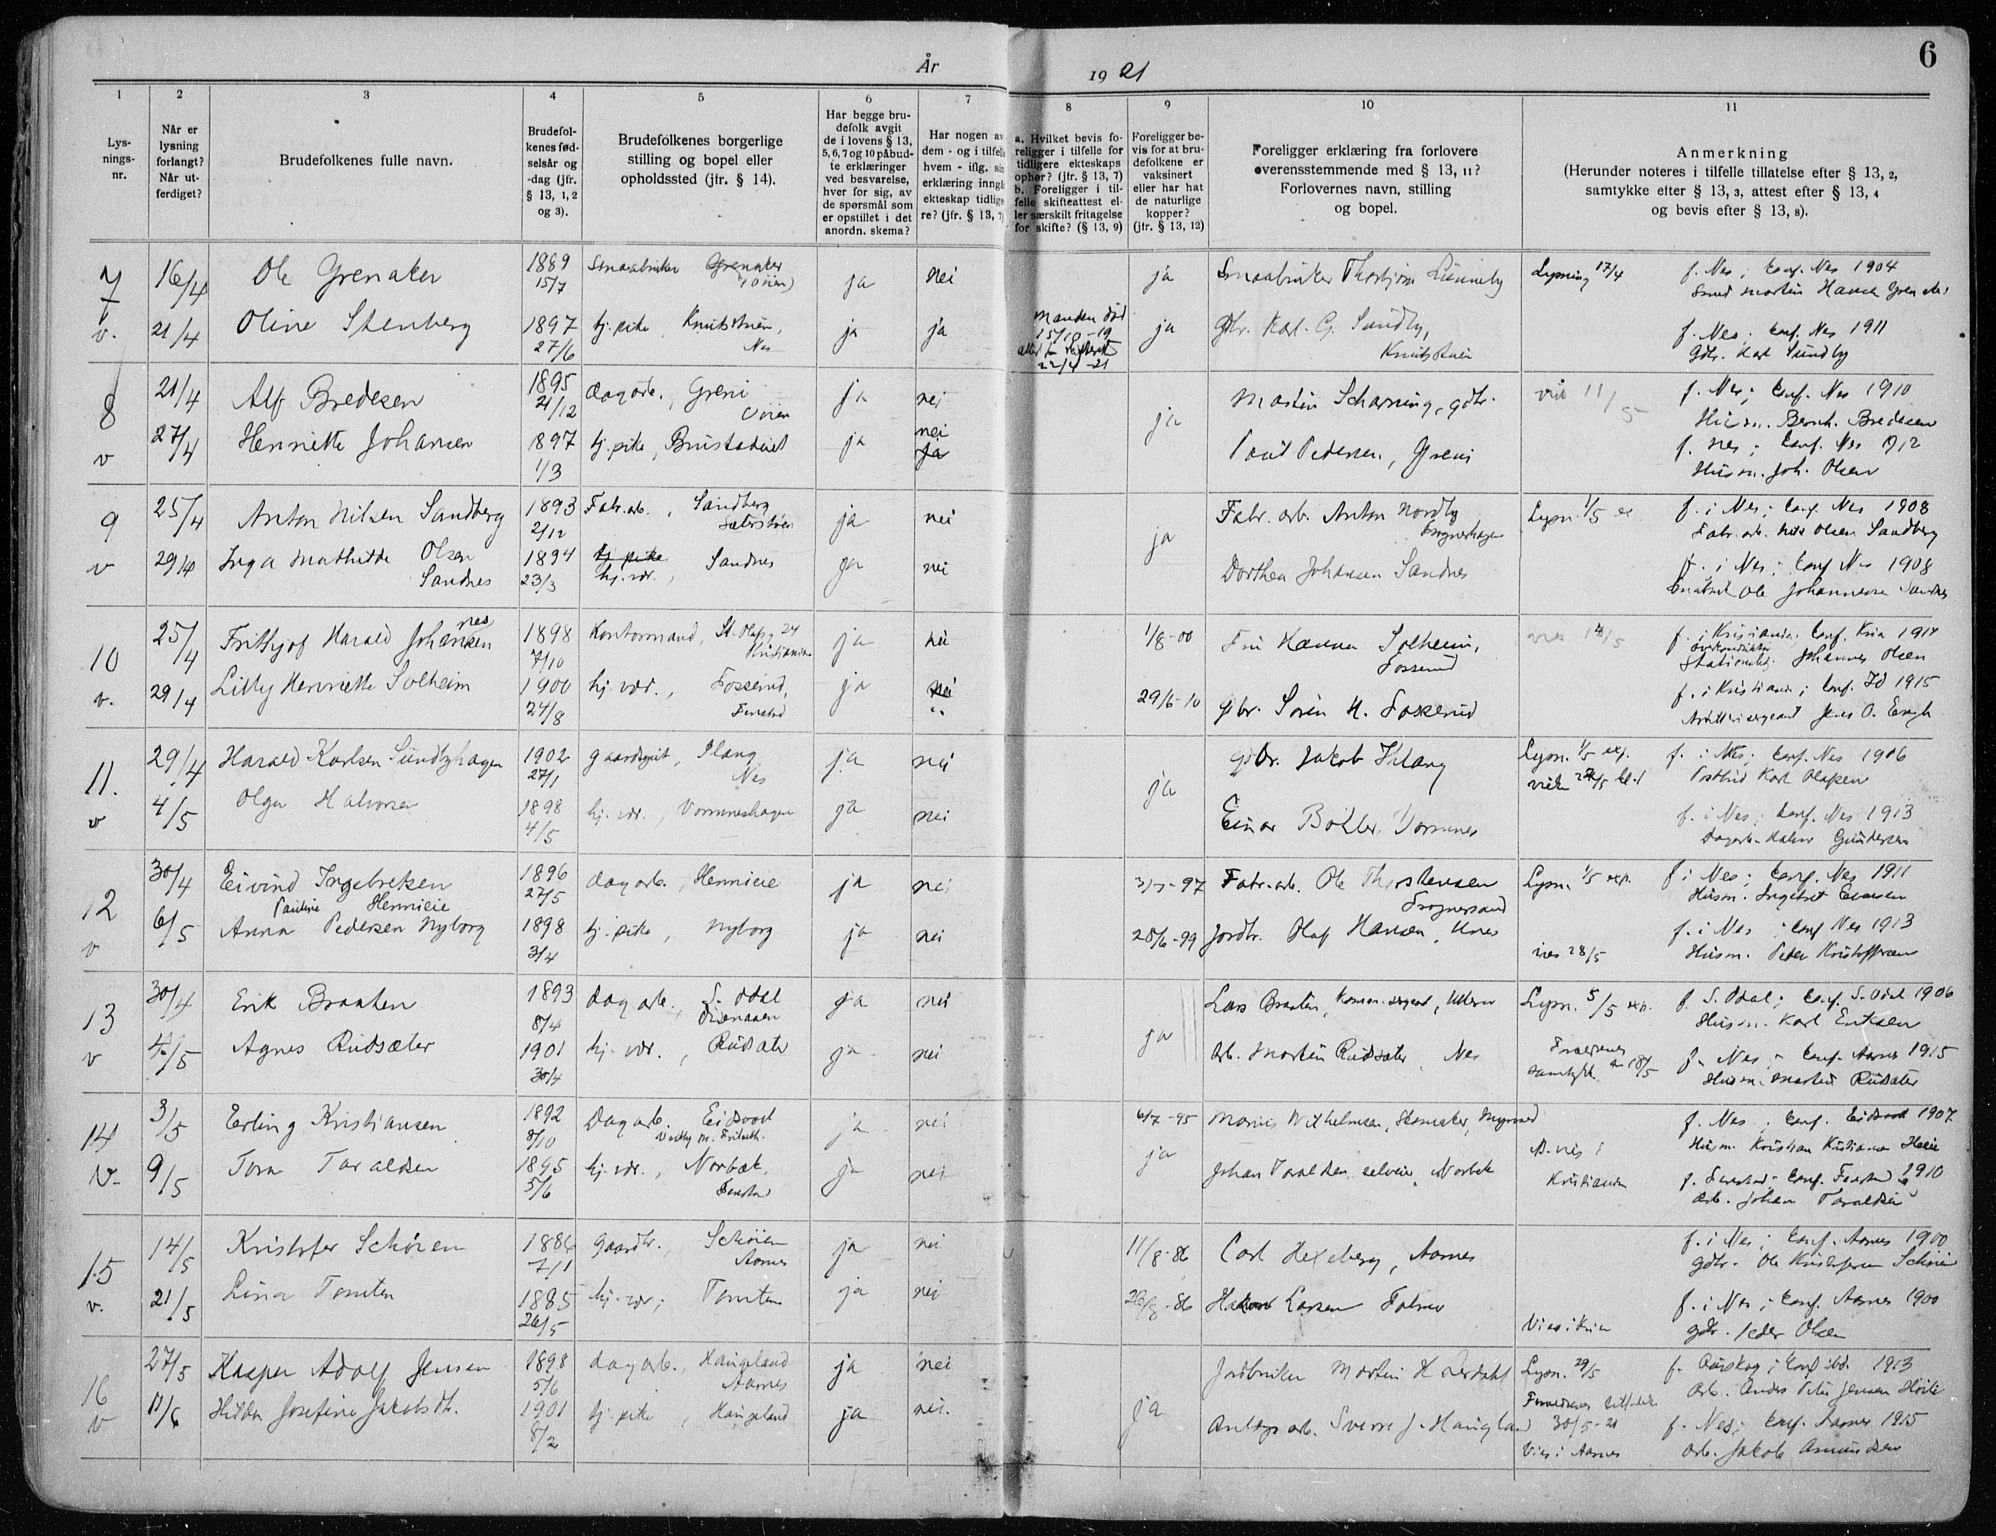 År 1921
6
1 2 3 4 5 6 7 8 9 10 11
Lys-
nings-
nr.
Når er
lysning
forlangt?
Når ut-
ferdiget?
Brudefolkenes fulle navn.
Brudefol-
kenes fød-
selsår og
-dag (jfr.
§ 13, 1, 2
og 3).
Brudefolkenes borgerlige
stilling og bopel eller
opholdssted (jfr. § 14).
Har begge bru-
defolk avgit
de i lovens § 13,
5, 6, 7 og 10 påbud-
te erklæringer
ved besvarelse,
hver for sig, av
de spørsmål som
er opstillet i det
anordn. skema?
Har nogen av
dem - og i tilfelle
hvem - iflg. sin
erklæring inngå
ekteskap tidlige
re? (jfr. § 13, 7)
a. Hvilket bevis fo-
religger i tilfelle for
tidligere ekteskaps
ophør? (jfr. § 13, 7)
b. Foreligger i til-
felle skifteattest el-
ler særskilt fritagelse
for skifte? (§ 13, 9)
Foreligger be-
vis for at bru-
defolkene er
vaksinert
eller har hat
de naturlige
kopper?
(jfr. § 13, 12)
Foreligger erklæring fra forlovere
overensstemmende med § 13, 11?
Forlovernes navn, stilling
og bopel.
Anmerkning
(Herunder noteres i tilfelle tillatelse efter § 13, 2,
samtykke efter § 13, 3, attest efter § 13, 4
og bevis efter § 13, 8).
7 16/4 Ole Grenaker 1889 15/7 Smaabruker Grenaker ja nei ja Smaabruker Thorbjørn Lunneby Lysning 17/4 f. Nes; Conf. Nes 1904
Smed Martin Hansen
v. 21/4 Oline Stenberg 1897 27/6 tj. pike, Nes ja ja Manden død 15/10-19 22/4-21 ja Gbr. Karl G. Sundby, f. Nes; Conf. Nes 1911
Gbr. Karl Sundby
8 21/4 Alf Bredesen 1895 21/12 dagarb., Greni ja nei ja Martin Scharning, gdbr. viet 11/5 f. Nes; Conf. Nes 1910
Husm. Bernh. Bredesen
v 27/4 Henriette Johansen 1897 1/3 tj. pike, ja nei ja Paul Pedersen, Greni f. Nes; Conf. Nes 1912
Husm. Joh. Olsen
9 25/4 Anton Nilsen Sandberg 1893 2/12 Fabr. arb., Sandberg ja nei ja Fabr. arb. Anton Nordby Lysn. 1/5 f. i Nes; Conf. Nes 1908
Fabr. arb. Nils Olsen Sandberg
v 29/4 Inga Mathilde Olsen Sandnes 1894 23/3 tj. pike hj. vær., Sandnes ja nei Dorthea Johansen Sandnes f. i Nes; Conf. Nes 1908
Ole Johannesen Sandnes
10 25/4 Frithjof Harald Johannesen 1898 7/10 Kontormand, St. Olafsg 24 Kristiania ja nei 1/8-00 Fru Hanna Solheim, Fosserud f. i Kristiania; Conf. Kria 1914
Johannes Olsen
v. 29/4 Lilly Henriette Solheim 1900 24/8 hj. vær., Fosserud, Fenstad ja nei 29/6-10 Gbr. Søren H. Fosserud f. i Kristiania; Conf. Id 1915
Artillerisergeant Jens O. Engh
11. 29/4 Harald Karlsen Sundbyhagen 1902 27/1 gaardsgut, Ilang Nes ja nei ja Gbr. Jakob Ilang Lysn. 1/5 exp. f. i Nes; Conf. Nes 1916
Postbud Karl Olafsen
v 4/5 Olga Halvorsen 1898 4/5 hj. vær., Vormneshagen ja nei Einar Bøhler Vormnes f. i Nes; Conf. Nes 1913
Dagarb. Halvor Gundersen
12 30/4 Eivind Ingebretsen Hennieie 1896 27/5 dagarb., Hennieie ja nei 97 Fabr. arb. Ole Thorstensen Frognersand Lysn. 1/5 exp. f. i Nes; Conf. Nes 1911
Husm. Ingebret Evensen
v 6/5 Anna Pauline Pedersen Nyborg 1898 3/4 tj. pike, Nyborg ja nei 28/6-99 Jordbr. Olaf Hansen, Unes vies 28/5 f. i Nes; Conf. Nes 1913
Husm. Peder Kristoffersen
13 30/4 Erik Braaten 1893 8/4 dagarb. S. Odal ja nei ja Lars Braaten, Lysn. 5/5 exp. f. S. Odal; Conf. S. Odal 1906
Husm. Karl Eriksen
v Agnes Rudsæter 1901 30/4 hj. vær., Rudsæter ja nei Arb. Martin Rudsæter, Nes Forældrenes samtykke 18/5 f. Nes; Conf. Aarnes 1915
Husm. Martin Rudsæter
14 3/5 Erling Kristiansen 1892 8/10 Dagarb. Eidsvold ja nei 6/7-95 Wilhelmsen, Skomaker, Kristiania f. Nes; Conf. Eidsvold 1907
Husm. Kristian Kristiansen
v. 9/5 Tora Taraldsen 1895 5/6 hj. vær., Norbæk, Fenstad ja nei ja Johan Taraldsen, selveier, Norbæk f. Fenstad; Conf. Fenstad 1910
Arb. Johan Taraldsen
15 14/5 Kristofer Schøien 1886 7/1 gaardbr., Schøien Aarnes ja nei 11/8-86 Carl Hexeberg, Aarnes f. i Nes; Conf. Aarnes 1900
gdbr. Ole Kristofersen Schøien
v. 21/5 Lina Tomten 1885 26/5 hj. vær; Tomten ja nei 86 Larsen Vies i Kria f. i Nes; Conf. Aarnes 1900
gdr. Peder Olsen
16 27/5 Kasper Adolf Jensen 1898 5/6 dagarb., Haugeland Aarnes ja nei ja Jordbruker Martin Lysn. 29/5 f. Aurskog; Conf. ibd. 1913
arb. Anders Peter Jensen
v 11/6 Hilda Josefine Jakobsdtr. 1901 8/2 tj. pike, Haugeland ja nei. Anlegsarb. Sverre J. Haugland Forældrenes 30/5-21 Vies i Aarnes f. Nes; Conf. Aarnes 1915
arb. Jakob Amundsen